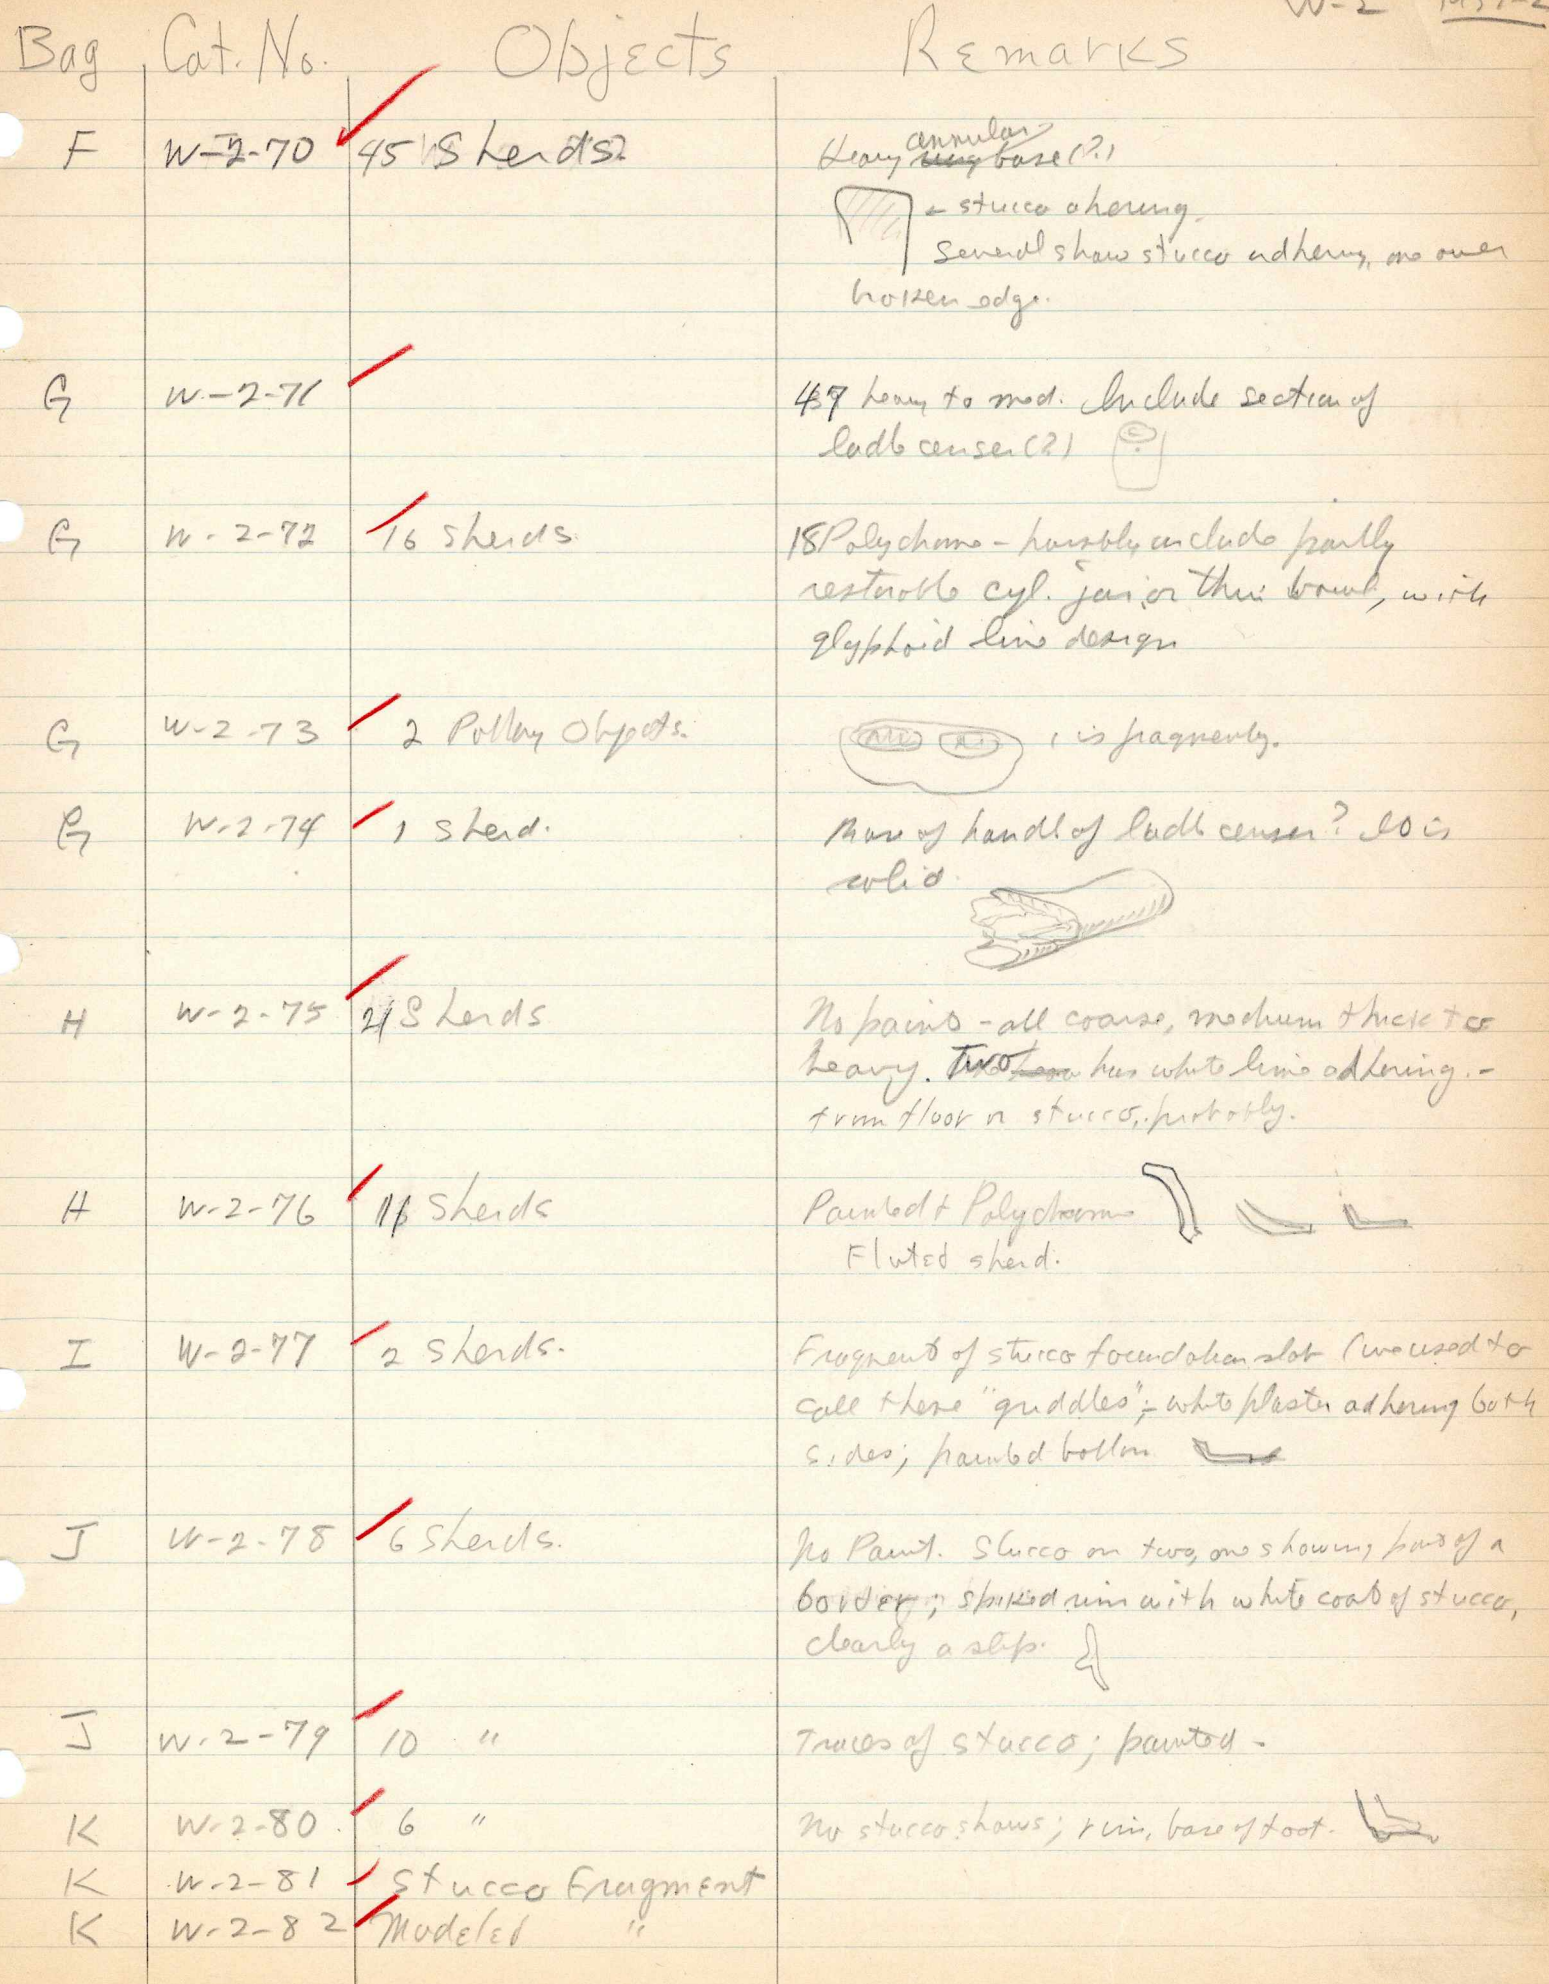 W-2
Bag Cat. No. Objects Remarks
F W-2-70 45 Sherds Heavy annular base (?)
← stucco ahering.
Several show stucco adhering, one over
broken edge.
G W-2-71 47 heavy to med. Include section of
ladle censer (?)
G W-2-72 16 Sherds 18 Polychrome - possibly include partly
restorable cyl. jar, or thin bowl, with
glyphoid line design
G W-2-73 2 Pottery Objects. 1 is fragmenty.
G W-2-74 1 Sherd. More of handle of ladle censer? is
solid.
H W-2-75 21 Sherds No paint - all coarse, medium thick to
heavy. Two has white lime adhering. -
from floor or stucco, probably.
H W-2-76 Sherds Painted + Polychrome
Fluted sherd.
I W-2-77 2 Sherds. Fragment of stucco foundation slab (we used to
call these "griddles"; - white plaster adhering both
sides; painted bottom
J W-2-78 6 Sherds. No Paint. Stucco on two, one showing part of a
border; spiked rim with white coat of stucco,
clearly a slip.
J W-2-79 10 " Traces of stucco; painted -
K W-2-80 6 " No stucco shows; rim, base of foot.
K W-2-81 Stucco Fragment
K W-2-82 Modeled "